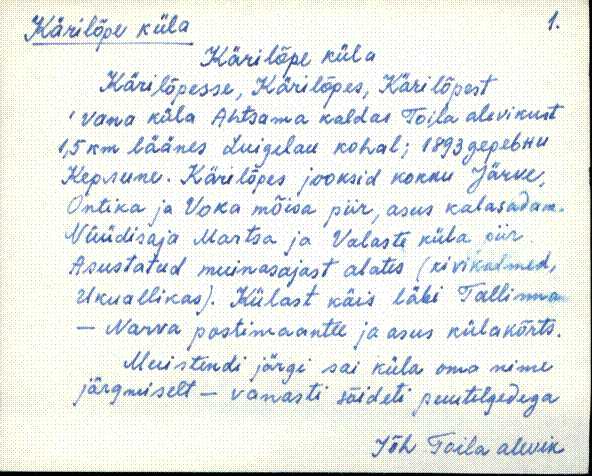 Kärilõpe küla 1.
Kärilõpe küla
Kärilõpesse, Kärilõpes, Kärilõpest
' vana küla Ahtsama kaldas Toila alevikust
1,5 km läänes Luigelau kohal; 1893 деревни
Керлипе. Kärilõpes jooksid kokku Järve,
Ontika ja Voka mõisa piir, asus kalasadam.
Nüüdisaja Martsa ja Valaste küla piir.
Asustatud muinasajast alates (kivikalmed,
Ukuallikas). Külast käis läbi Tallinna
— Narva postimaantee ja asus külakõrts.
Muistendi järgi sai küla oma nime
järgmiselt — vanasti sõideti puutelgedega
Jõh Toila alevik